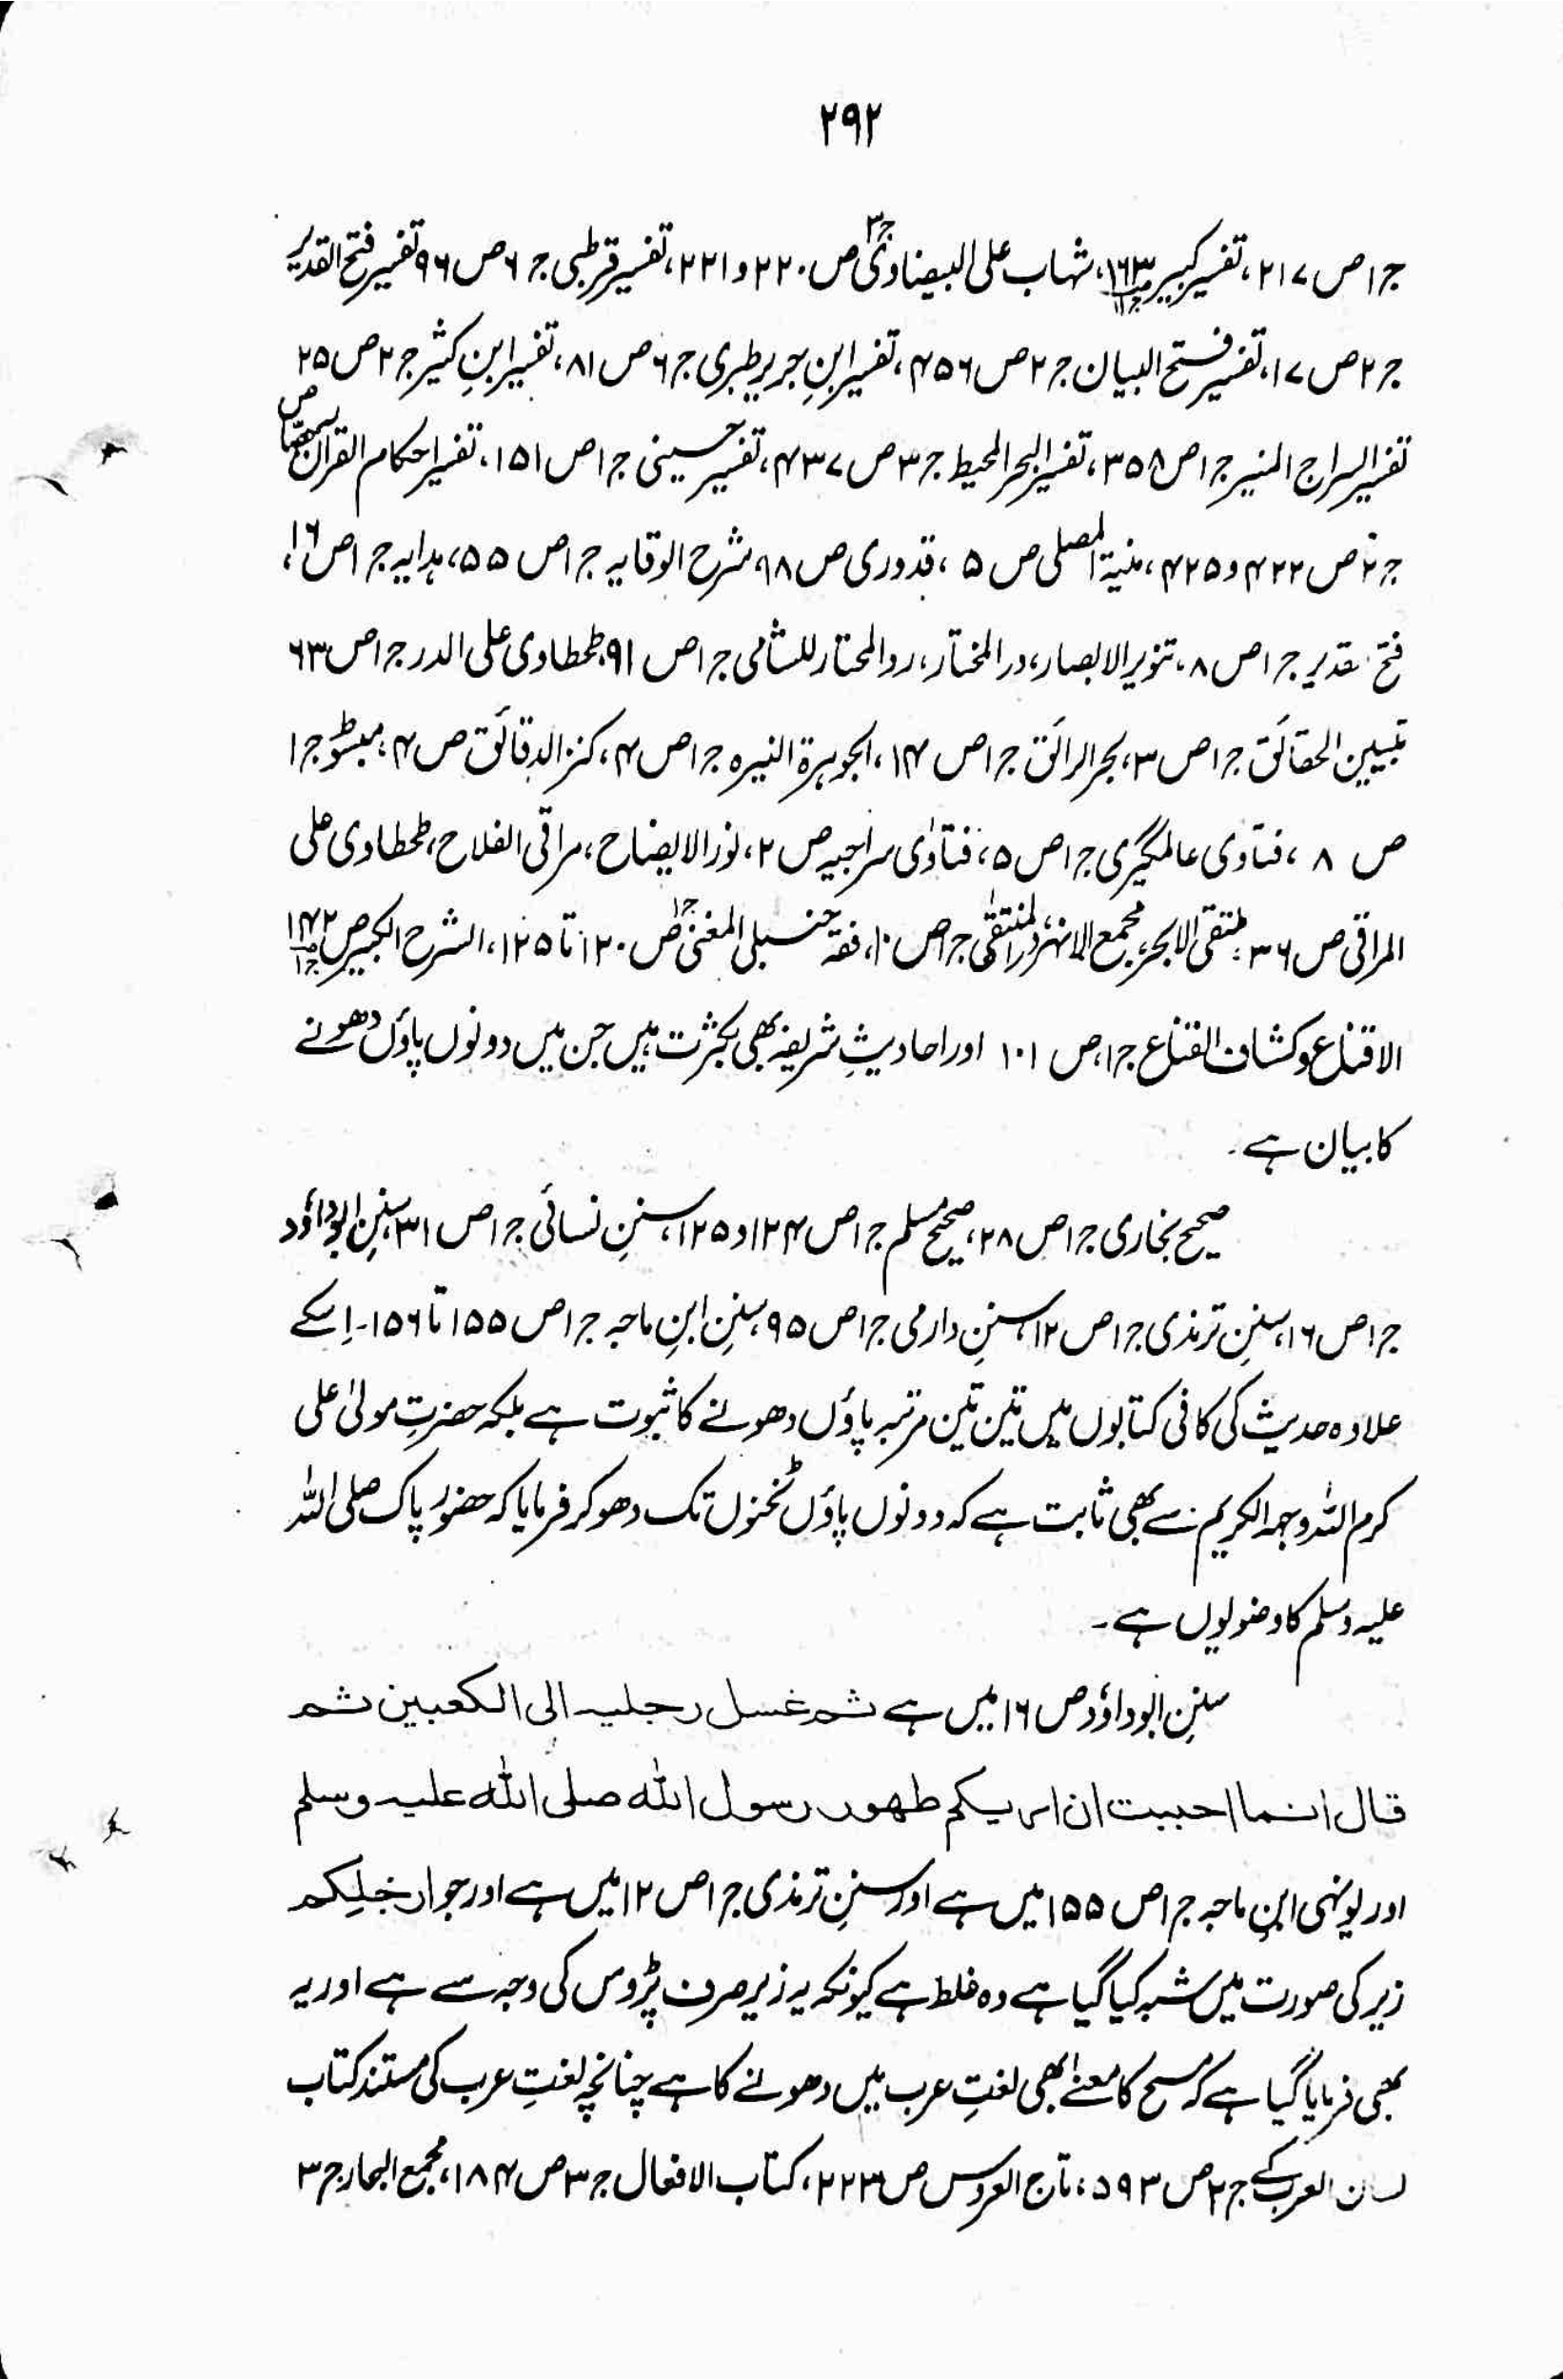 ۲۹۲
ج۱ ص ۲۱۷، تفسیر کبیر ص۱۶۳ ج۱۱، شہاب علی البیضاوی ج۳ ص ۲۲۰ و ۲۲۱، تفسیر قرطبی ج ۶ ص ۹۶ تفسیر فتح القدیر
ج ۲ ص ۱۷، تفسیر فتح البیان ج ۲ ص ۴۵۶، تفسیر ابنِ جریر طبری ج ۶ ص ۸۱، تفسیر ابنِ کثیر ج ۲ ص ۲۵
تفسیر السراج المنیر ج ۱ ص ۳۵۸، تفسیر البحر المحیط ج ۳ ص ۴۳۷، تفسیر حسینی ج ۱ ص ۱۵۱، تفسیر احکام القرآن للجصاص
ج ۲ ص ۴۲۲ و ۴۲۵، منیۃ المصلی ص ۵، قدوری ص ۹۸ شرح الوقایہ ج ۱ ص ۵۵، ہدایہ ج ۱ ص ۱۶،
فتح القدیر ج ۱ ص ۸، تنویر الابصار، در المختار، رد المحتار للشامی ج ۱ ص ۹۱، طحطاوی علی الدر ج ۱ ص ۶۳
تبیین الحقائق ج ۱ ص ۳، بحر الرائق ج ۱ ص ۱۴، الجوہرۃ النیرہ ج ۱ ص ۴، کنز الدقائق ص ۴، مبسوط ج ۱
ص ۸، فتاوی عالمگیری ج ۱ ص ۵، فتاوٰی سراجیہ ص ۲، نور الایضاح، مراقی الفلاح، طحطاوی علی
المراقی ص ۳۶، ملتقی الابحر، مجمع الانہر، در المنتقٰی ج ۱ ص ۱۰، فقہ حنبلی المغنی ج۱ ص ۱۲۰ تا ۱۲۵، الشرح الکبیر ص ۱۴۲ ج۱
الاقناع و کشاف القناع ج ۱، ص ۱۰۱ اور احادیثِ شریفہ بھی بکثرت ہیں جن میں دونوں پاؤں دھونے
کا بیان ہے۔
صحیح بخاری ج ۱ ص ۲۸، صحیح مسلم ج ۱ ص ۱۲۴ و ۱۲۵، سننِ نسائی ج ۱ ص ۳۱، سننِ ابوداؤد
ج ۱ ص ۱۶، سننِ ترمذی ج ۱ ص ۱۲، سننِ دارمی ج ۱ ص ۹۵، سننِ ابنِ ماجہ ج ۱ ص ۱۵۵ تا ۱۵۶۔ اِسکے
علاوہ حدیث کی کافی کتابوں میں تین تین مرتبہ پاؤں دھونے کا ثبوت ہے بلکہ حضرتِ مولیٰ علی
کرم اللہ وجہہ الکریم سے بھی ثابت ہے کہ دونوں پاؤں ٹخنوں تک دھو کر فرمایا کہ حضورِ پاک صلی اللہ
علیہ وسلم کا وضو یوں ہے۔
سننِ ابوداؤد ص ۱۶ میں ہے ثم غسل رجلیہ الی الکعبین ثم
قال انما احببت ان اریکم طھور رسول اللہ صلی اللہ علیہ وسلم
اور یونہی ابنِ ماجہ ج ۱ ص ۱۵۵ میں ہے اور سننِ ترمذی ج ۱ ص ۱۲ میں ہے اور جو ارجلِکم
زیر کی صورت میں شبہ کیا گیا ہے وہ غلط ہے کیونکہ یہ زیر صرف پڑوس کی وجہ سے ہے اور یہ
بھی فرمایا گیا ہے کہ مسح کا معنے بھی لغتِ عرب میں دھونے کا ہے چنانچہ لغتِ عرب کی مستند کتاب
لسان العرب کے ج ۲ ص ۵۹۳، تاج العروس ص ۲۲۳، کتاب الافعال ج ۳ ص ۱۸۴، مجمع البحار ج ۳